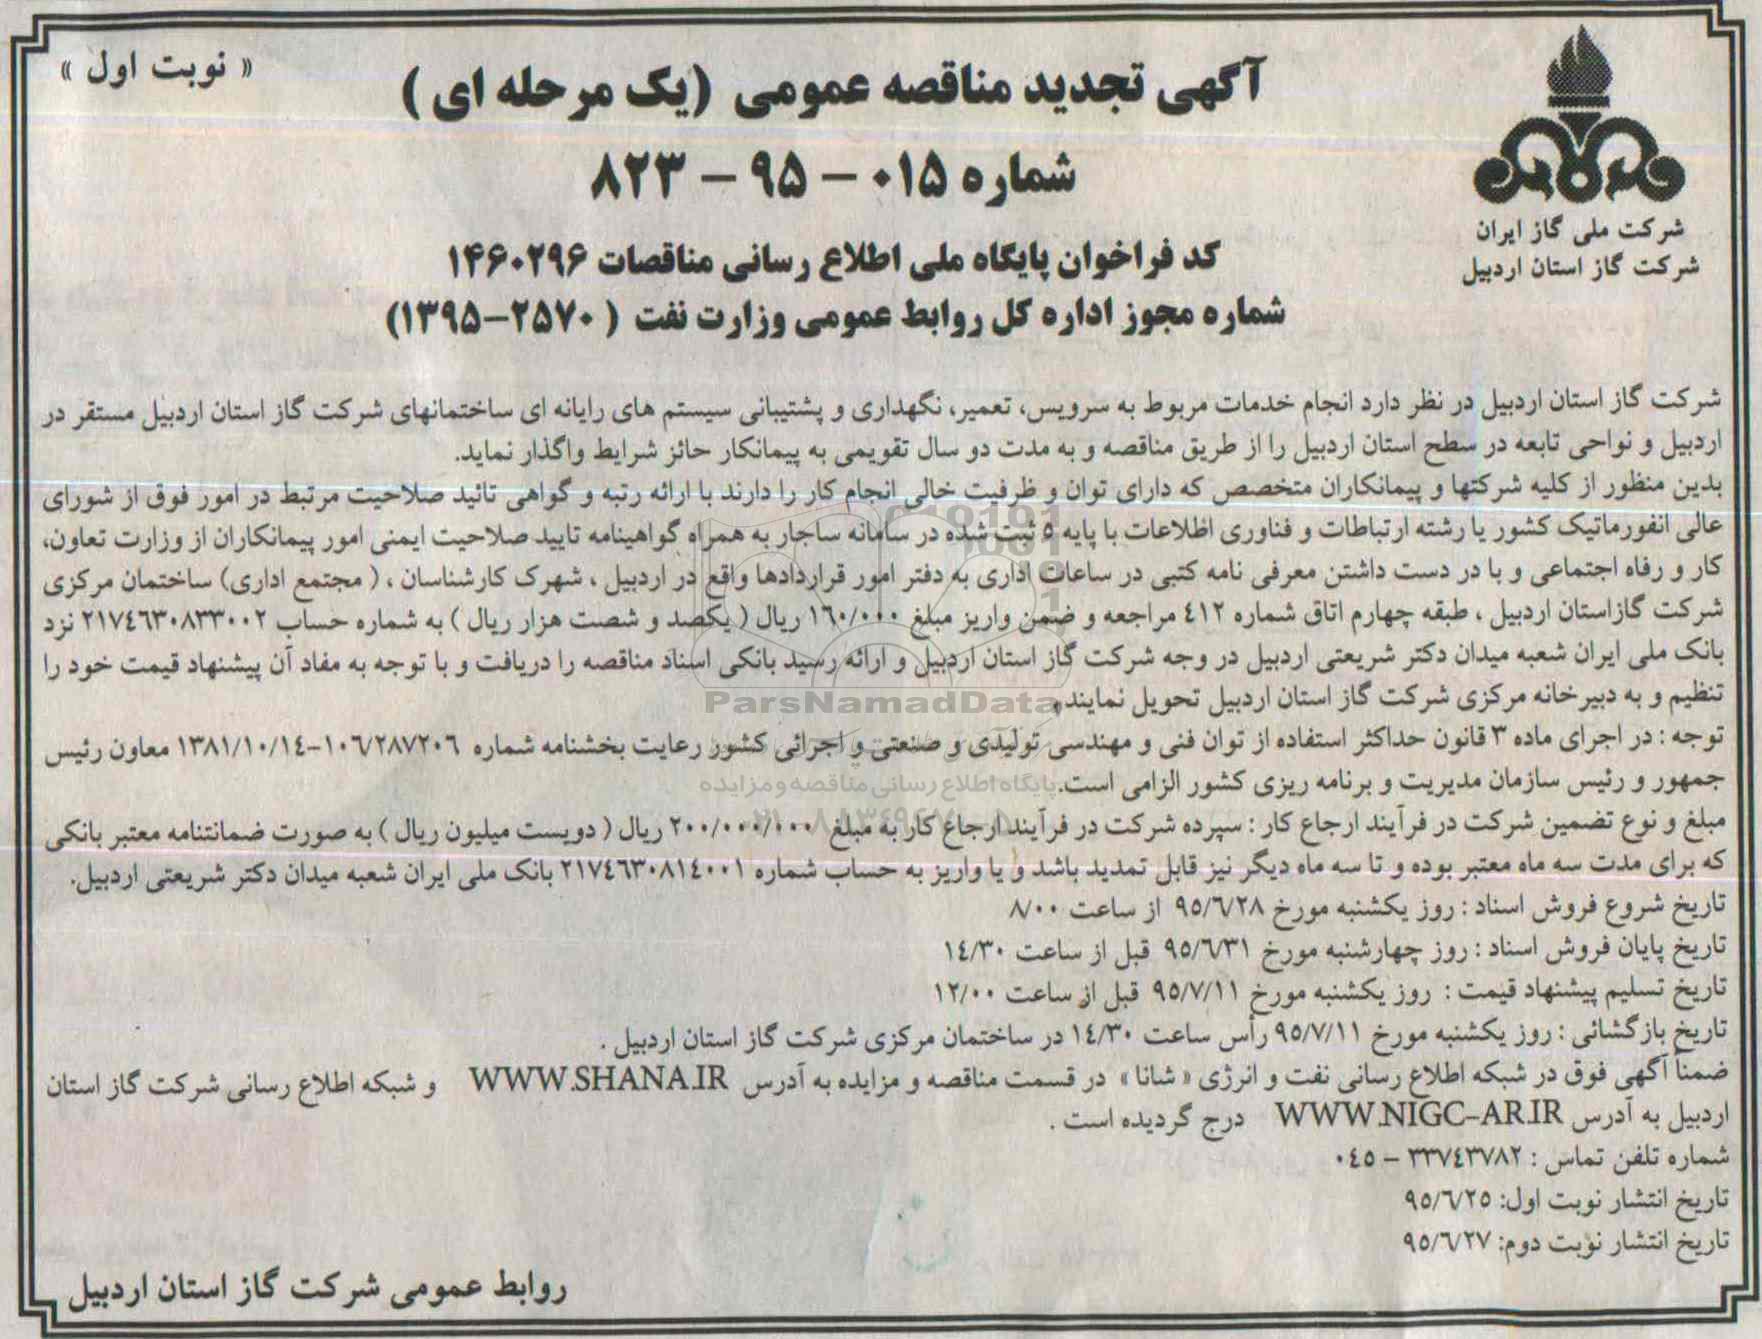 « نوبت اول »
آگهی تجدید مناقصه عمومی (یک مرحله ای )
شماره ۰۱۵ – ۹۵ – ۸۲۳
کد فراخوان پایگاه ملی اطلاع رسانی مناقصات ۱۴۶۰۲۹۶
شماره مجوز اداره کل روابط عمومی وزارت نفت ( ۲۵۷۰–۱۳۹۵)
شرکت ملی گاز ایران
شرکت گاز استان اردبیل
شرکت گاز استان اردبیل در نظر دارد انجام خدمات مربوط به سرویس، تعمیر، نگهداری و پشتیبانی سیستم های رایانه ای ساختمانهای شرکت گاز استان اردبیل مستقر در
اردبیل و نواحی تابعه در سطح استان اردبیل را از طریق مناقصه و به مدت دو سال تقویمی به پیمانکار حائز شرایط واگذار نماید.
بدین منظور از کلیه شرکتها و پیمانکاران متخصص که دارای توان و ظرفیت خالی انجام کار را دارند با ارائه رتبه و گواهی تائید صلاحیت مرتبط در امور فوق از شورای
عالی انفورماتیک کشور یا رشته ارتباطات و فناوری اطلاعات با پایه ٥ ثبت شده در سامانه ساجار به همراه گواهینامه تایید صلاحیت ایمنی امور پیمانکاران از وزارت تعاون،
کار و رفاه اجتماعی و با در دست داشتن معرفی نامه کتبی در ساعات اداری به دفتر امور قراردادها واقع در اردبیل ، شهرک کارشناسان ، ( مجتمع اداری) ساختمان مرکزی
شرکت گازاستان اردبیل ، طبقه چهارم اتاق شماره ٤١٢ مراجعه و ضمن واریز مبلغ ١٦٠/٠٠٠ ریال ( یکصد و شصت هزار ریال ) به شماره حساب ٢١٧٤٦٣٠٨٣٣٠٠٢ نزد
بانک ملی ایران شعبه میدان دکتر شریعتی اردبیل در وجه شرکت گاز استان اردبیل و ارائه رسید بانکی اسناد مناقصه را دریافت و با توجه به مفاد آن پیشنهاد قیمت خود را
تنظیم و به دبیرخانه مرکزی شرکت گاز استان اردبیل تحویل نمایند.
توجه : در اجرای ماده ٣ قانون حداکثر استفاده از توان فنی و مهندسی تولیدی و صنعتی و اجرائی کشور رعایت بخشنامه شماره ١٠٦/٢٨٧٢٠٦-١٣٨١/١٠/١٤ معاون رئیس
جمهور و رئیس سازمان مدیریت و برنامه ریزی کشور الزامی است.
مبلغ و نوع تضمین شرکت در فرآیند ارجاع کار : سپرده شرکت در فرآیند ارجاع کار به مبلغ ٢٠٠/٠٠٠/٠٠٠ ریال ( دویست میلیون ریال ) به صورت ضمانتنامه معتبر بانکی
که برای مدت سه ماه معتبر بوده و تا سه ماه دیگر نیز قابل تمدید باشد و یا واریز به حساب شماره ٢١٧٤٦٣٠٨١٤٠٠١ بانک ملی ایران شعبه میدان دکتر شریعتی اردبیل.
تاریخ شروع فروش اسناد : روز یکشنبه مورخ ٩٥/٦/٢٨ از ساعت ٨/٠٠
تاریخ پایان فروش اسناد : روز چهارشنبه مورخ ٩٥/٦/٣١ قبل از ساعت ١٤/٣٠
تاریخ تسلیم پیشنهاد قیمت : روز یکشنبه مورخ ٩٥/٧/١١ قبل از ساعت ١٢/٠٠
تاریخ بازگشائی : روز یکشنبه مورخ ٩٥/٧/١١ رأس ساعت ١٤/٣٠ در ساختمان مرکزی شرکت گاز استان اردبیل .
ضمناً آگهی فوق در شبکه اطلاع رسانی نفت و انرژی « شانا » در قسمت مناقصه و مزایده به آدرس WWW.SHANA.IR و شبکه اطلاع رسانی شرکت گاز استان
اردبیل به آدرس WWW.NIGC-AR.IR درج گردیده است .
شماره تلفن تماس : ٣٣٧٤٣٧٨٢ – ٠٤٥
تاریخ انتشار نوبت اول: ٩٥/٦/٢٥
تاریخ انتشار نوبت دوم: ٩٥/٦/٢٧
روابط عمومی شرکت گاز استان اردبیل
ParsNamadData
پایگاه اطلاع رسانی مناقصه و مزایده